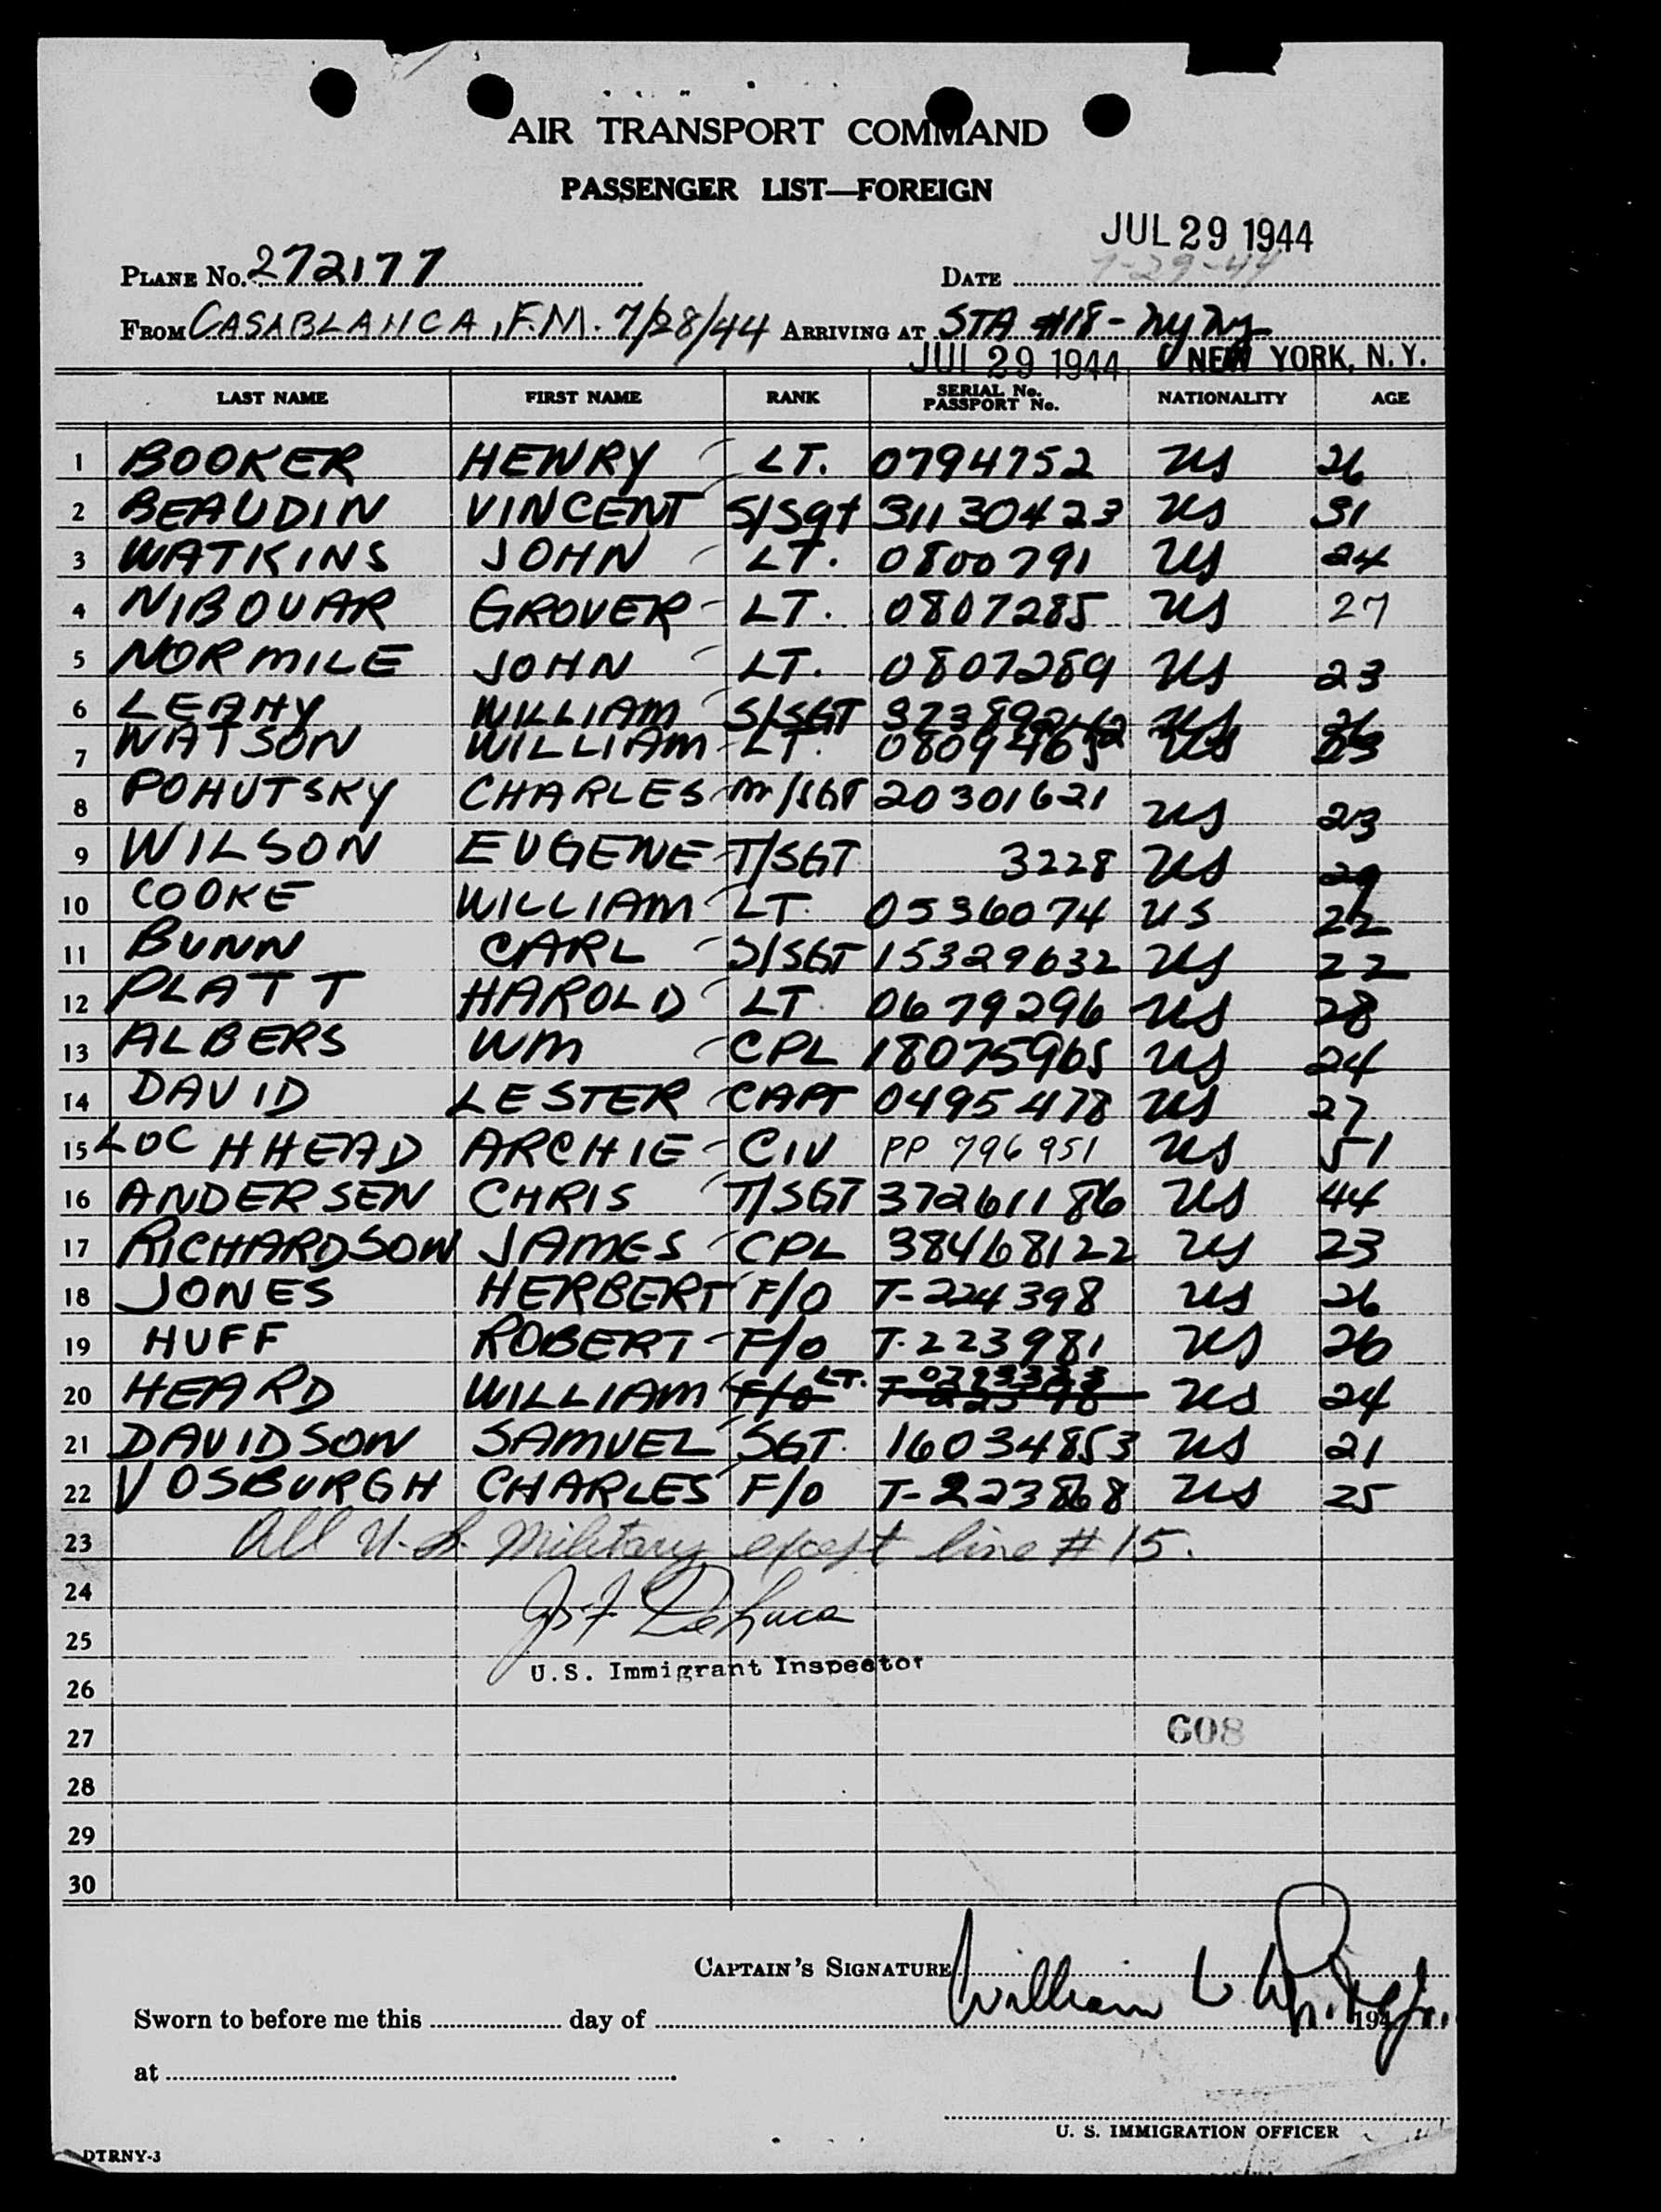 AIR TRANSPORT COMMAND
PASSENGER LIST—FOREIGN
JUL 29 1944
PLANE No. 272177 DATE 7-29-44
FROM CASABLANCA, F.M. 7/28/44 ARRIVING AT STA #18 - NY NY
JUL 29 1944 NEW YORK, N. Y.
LAST NAME FIRST NAME RANK SERIAL No. PASSPORT No. NATIONALITY AGE
1 BOOKER HENRY LT. 0794752 US 26
2 BEAUDIN VINCENT S/Sgt 31130423 US 31
3 WATKINS JOHN LT. 0800791 US 24
4 NIBOUAR GROVER LT. 0807285 US 27
5 NORMILE JOHN LT. 0807289 US 23
6 LEAHY WILLIAM S/SGT US
7 WATSON WILLIAM LT. US
8 POHUTSKY CHARLES M/SGT 20301621 US 23
9 WILSON EUGENE T/SGT 3228 US 29
10 COOKE WILLIAM LT. 0536074 US 22
11 BUNN CARL S/SGT 15329632 US 22
12 PLATT HAROLD LT. 0679296 US 28
13 ALBERS WM CPL 18075965 US 24
14 DAVID LESTER CAPT 0495478 US 27
15 LOCHHEAD ARCHIE CIV PP 796951 US 51
16 ANDERSEN CHRIS T/SGT 37261186 US 44
17 RICHARDSON JAMES CPL 38468122 US 23
18 JONES HERBERT F/O T-224398 US 26
19 HUFF ROBERT F/O T-223981 US 26
20 HEARD WILLIAM F/O LT. US 24
21 DAVIDSON SAMUEL SGT. 16034853 US 21
22 VOSBURGH CHARLES F/O T-223868 US 25
23 All U.S. Military except line #15.
24
25
U.S. Immigrant Inspector
26
27 608
28
29
30
CAPTAIN'S SIGNATURE William L.
Sworn to before me this day of 194
at
U. S. IMMIGRATION OFFICER
DTRNY-3